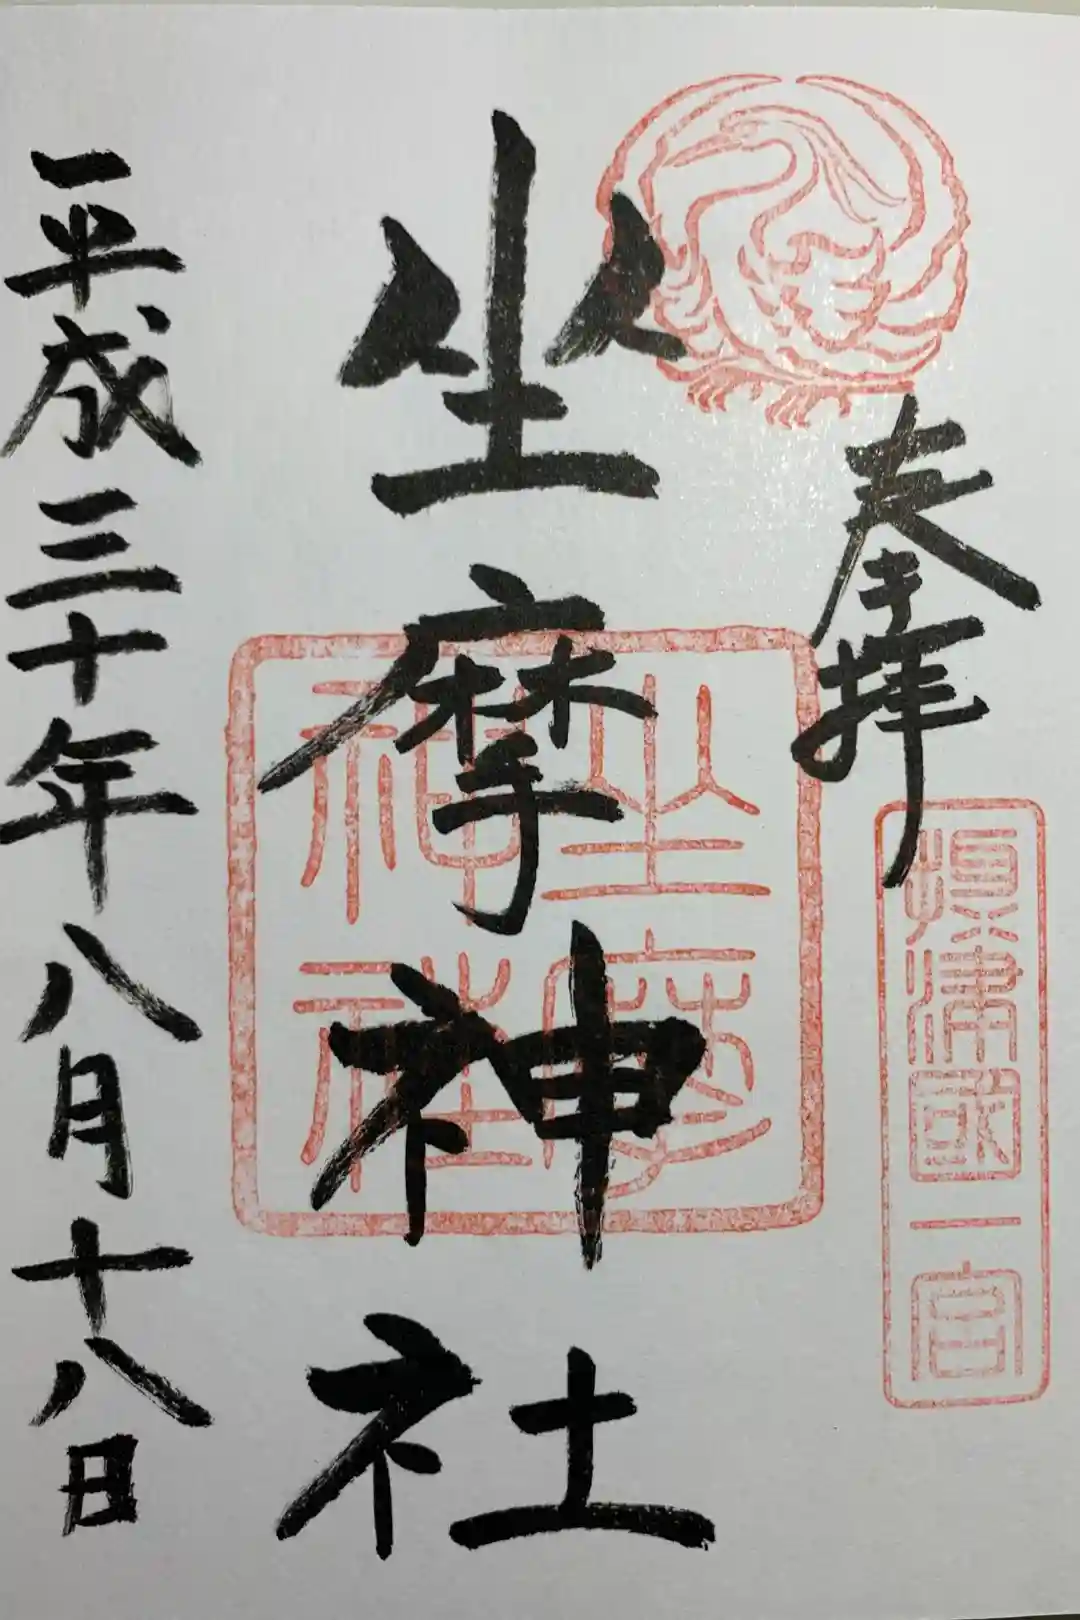 奉拝
摂津國一宮
坐摩神社
坐摩神社
平成三十年八月十八日